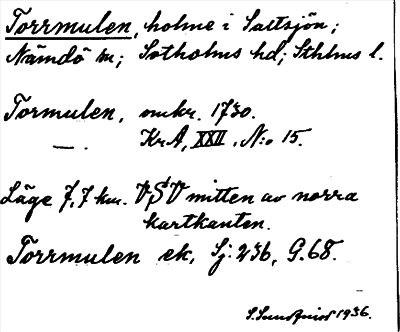 Torrmulen, holme i Saltsjön;
Nämdö sn; Sotholms hd; Sthlms l.
Tormulen, omkr. 1730.
—. KrA, XXII, N:o 15.
Läge 7,7 km. VSV mitten av norra
kartkanten.
Torrmulen ek, Sj. 236, G.68.
S. Sundquist 1936.